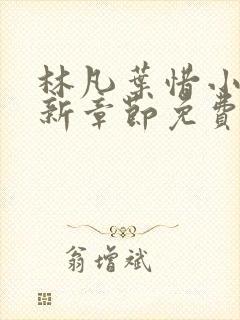 林凡葉惜小
新章節免費
翁增斌